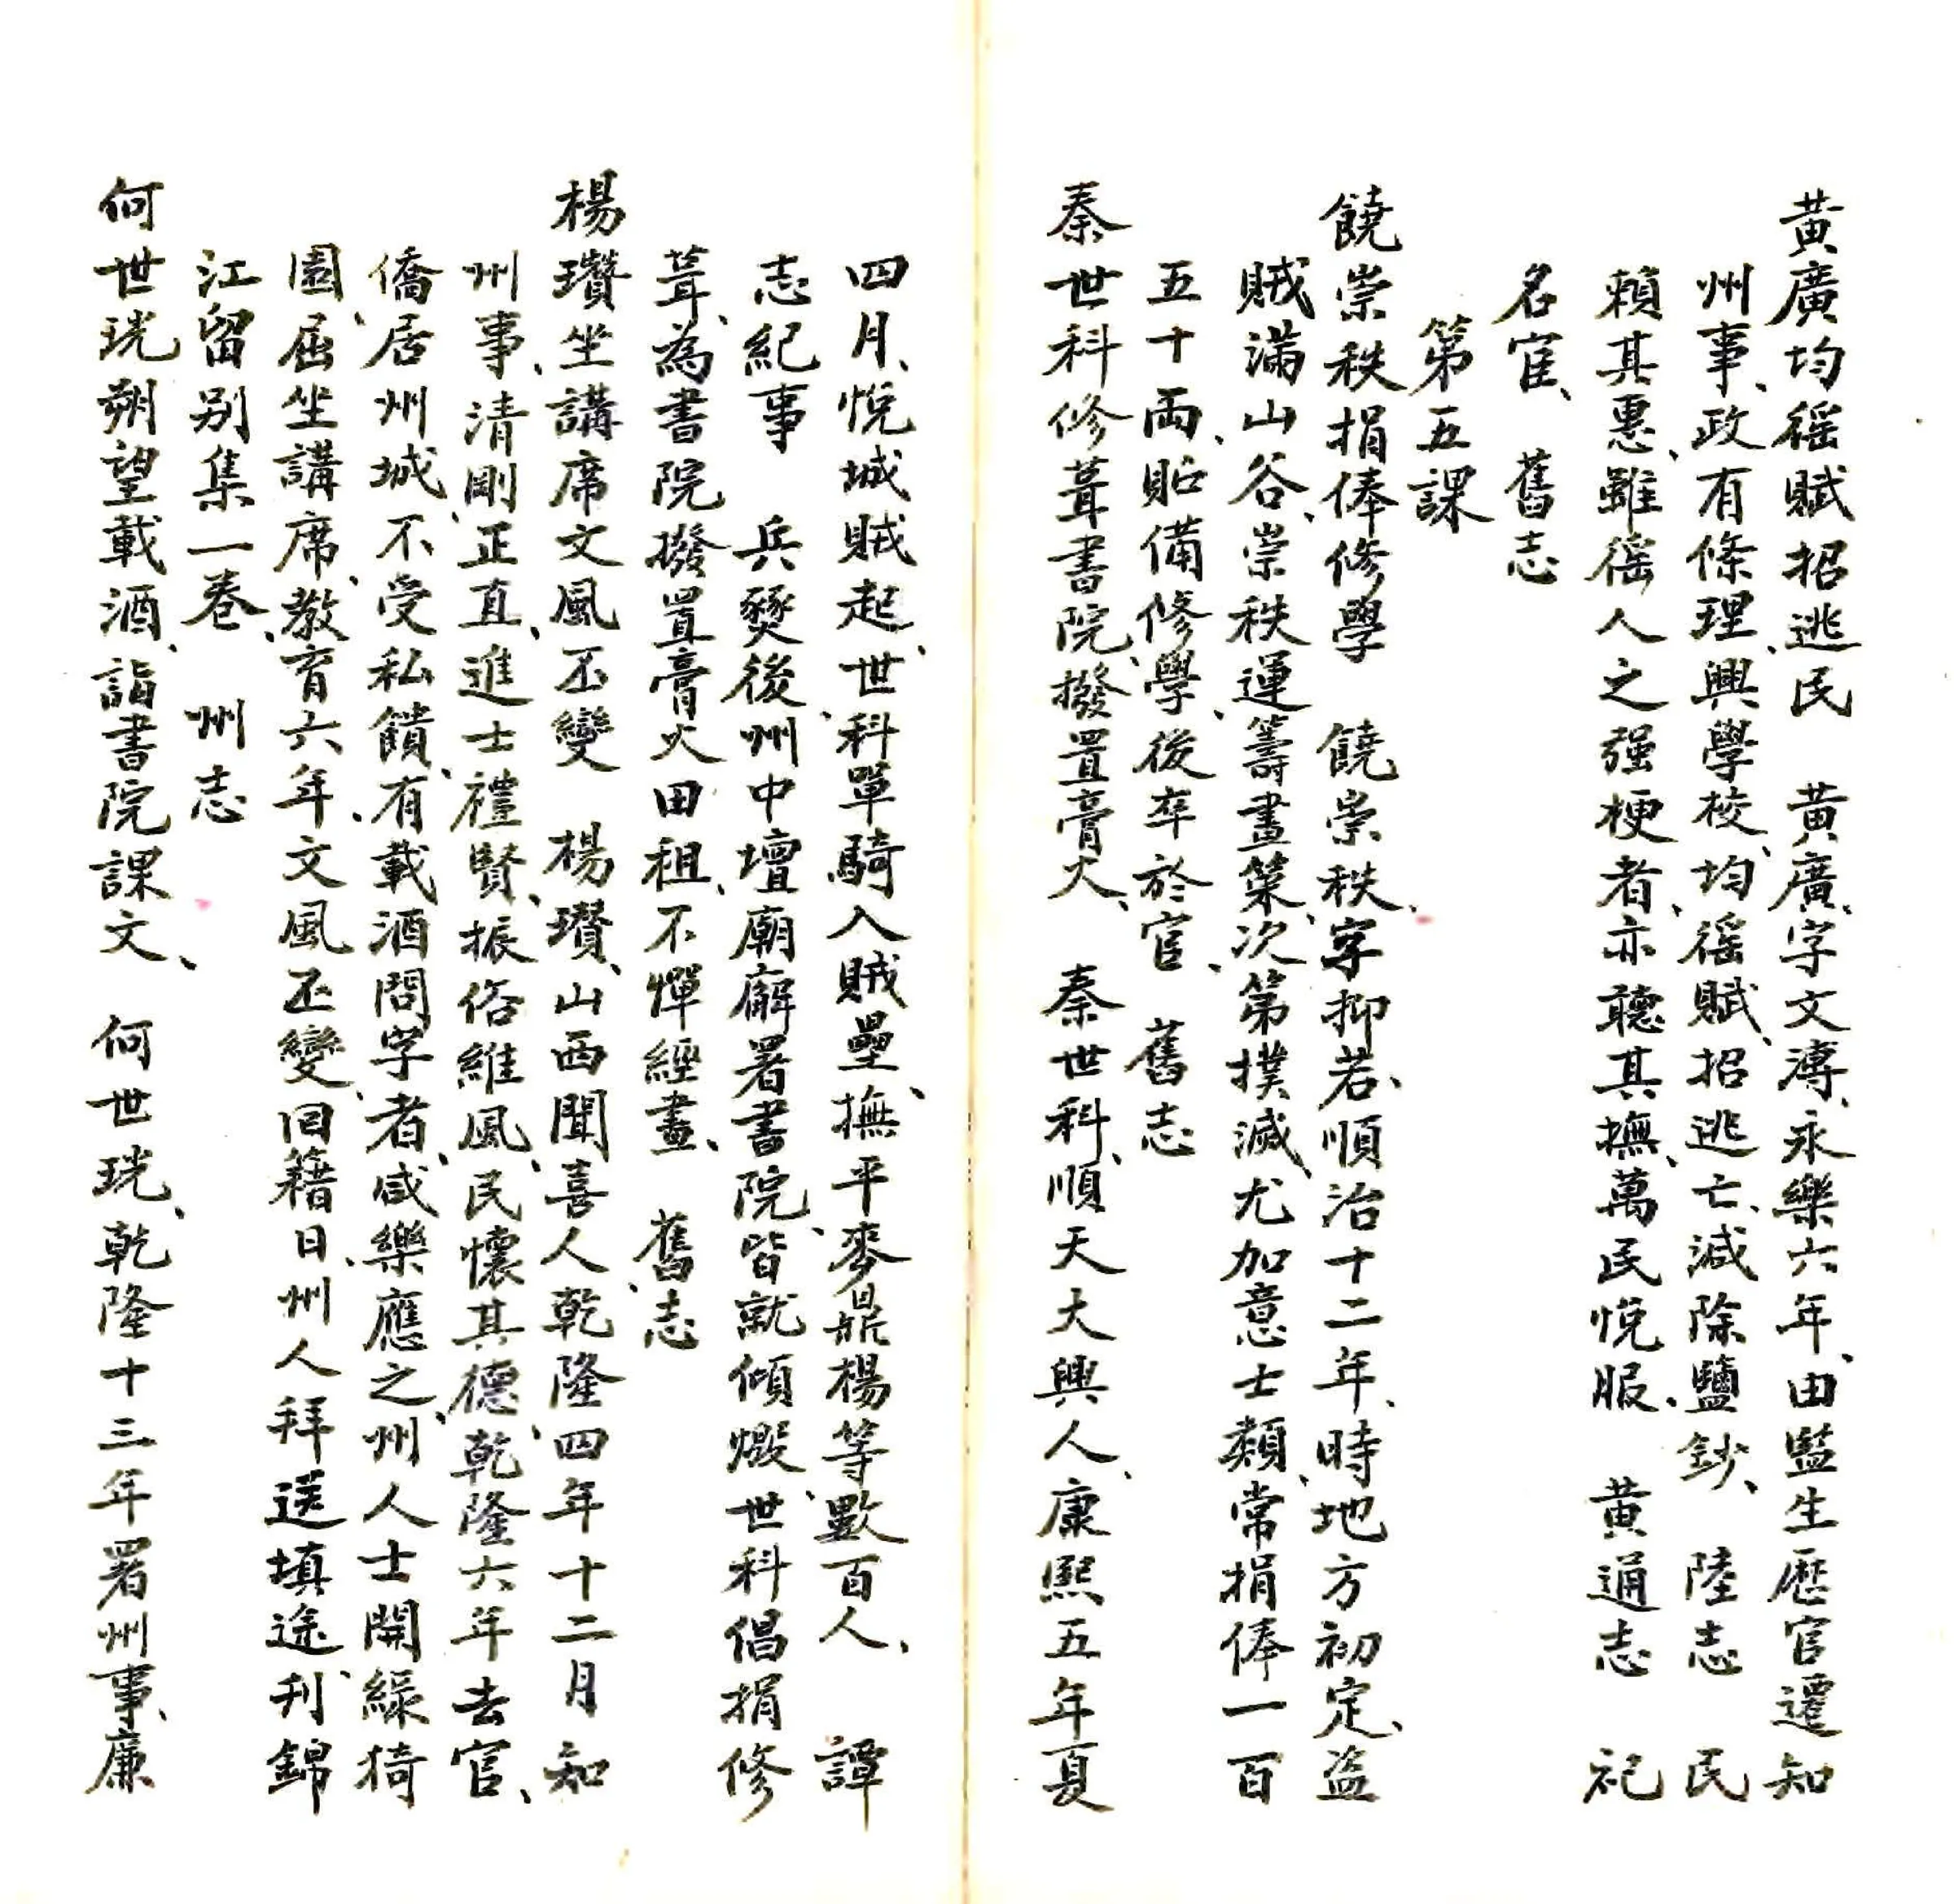 黃廣均徭賦招逃民　黃廣、字文溥、永樂六年、由監生歷官遷知
州事、政有條理、興學校、均徭賦、招逃亡、減除鹽鈔、陸志　民
賴其惠、雖徭人之强梗者、亦聽其撫、萬民悅服、黃通志　祀
名宦、舊志
第五課
饒崇秩捐俸修學　饒崇秩、字抑若、順治十二年、時地方初定、盜
賊滿山谷、崇秩運籌畫策、次第撲滅、尤加意士類、常捐俸一百
五十両、貯備修學、後卒於官、舊志
秦世科修葺書院、撥置膏火、　秦世科、順天大興人、康熙五年夏
四月、悅城賊起、世科單騎入賊壘、撫平麥鼎楊等數百人、　譚
志紀事　兵燹後州中壇廟廨署書院、皆就傾燬、世科倡捐修
葺、為書院撥置膏火田租、不憚經畫、　舊志
楊瓚坐講席文風丕變　楊瓚、山西聞喜人乾隆四年十二月知
州事、清剛正直、進士禮賢、振俗維風、民懷其德、乾隆六年去官、
僑居州城、不受私饋、有載酒問字者、咸樂應之、州人士開綠猗
園、屈坐講席、教育六年、文風丕變、囘籍日、州人拜送填途、刋錦
江留别集一卷、　州志
何世珖朔望載酒、詣書院課文、　何世珖、乾隆十三年署州事、廉